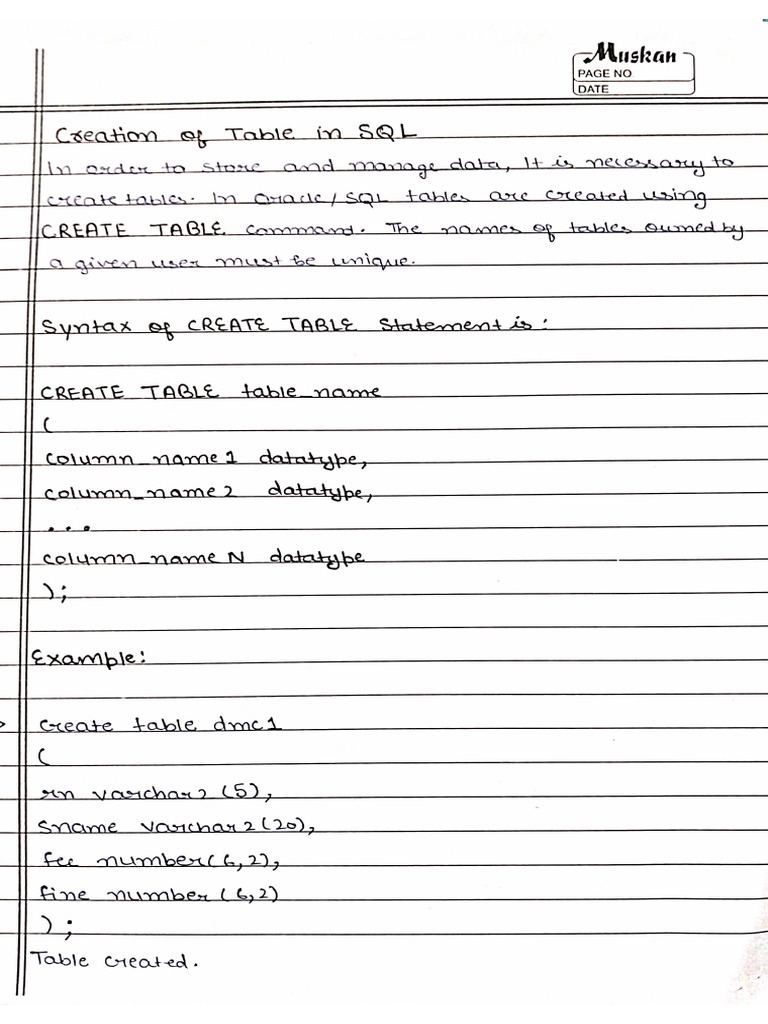 Muskan
PAGE NO
DATE
Creation of Table in SQL
In order to store and manage data, It is necessary to
create tables. In Oracle/SQL tables are created using
CREATE TABLE command. The names of tables owned by
a given user must be unique.
Syntax of CREATE TABLE Statement is:
CREATE TABLE table_name
(
column_name1 datatype,
column_name2 datatype,
...
column_nameN datatype
);
Example:
> Create table dmc1
(
rn varchar2(5),
Sname varchar2(20),
fee number(6,2),
fine number(6,2)
);
Table created.